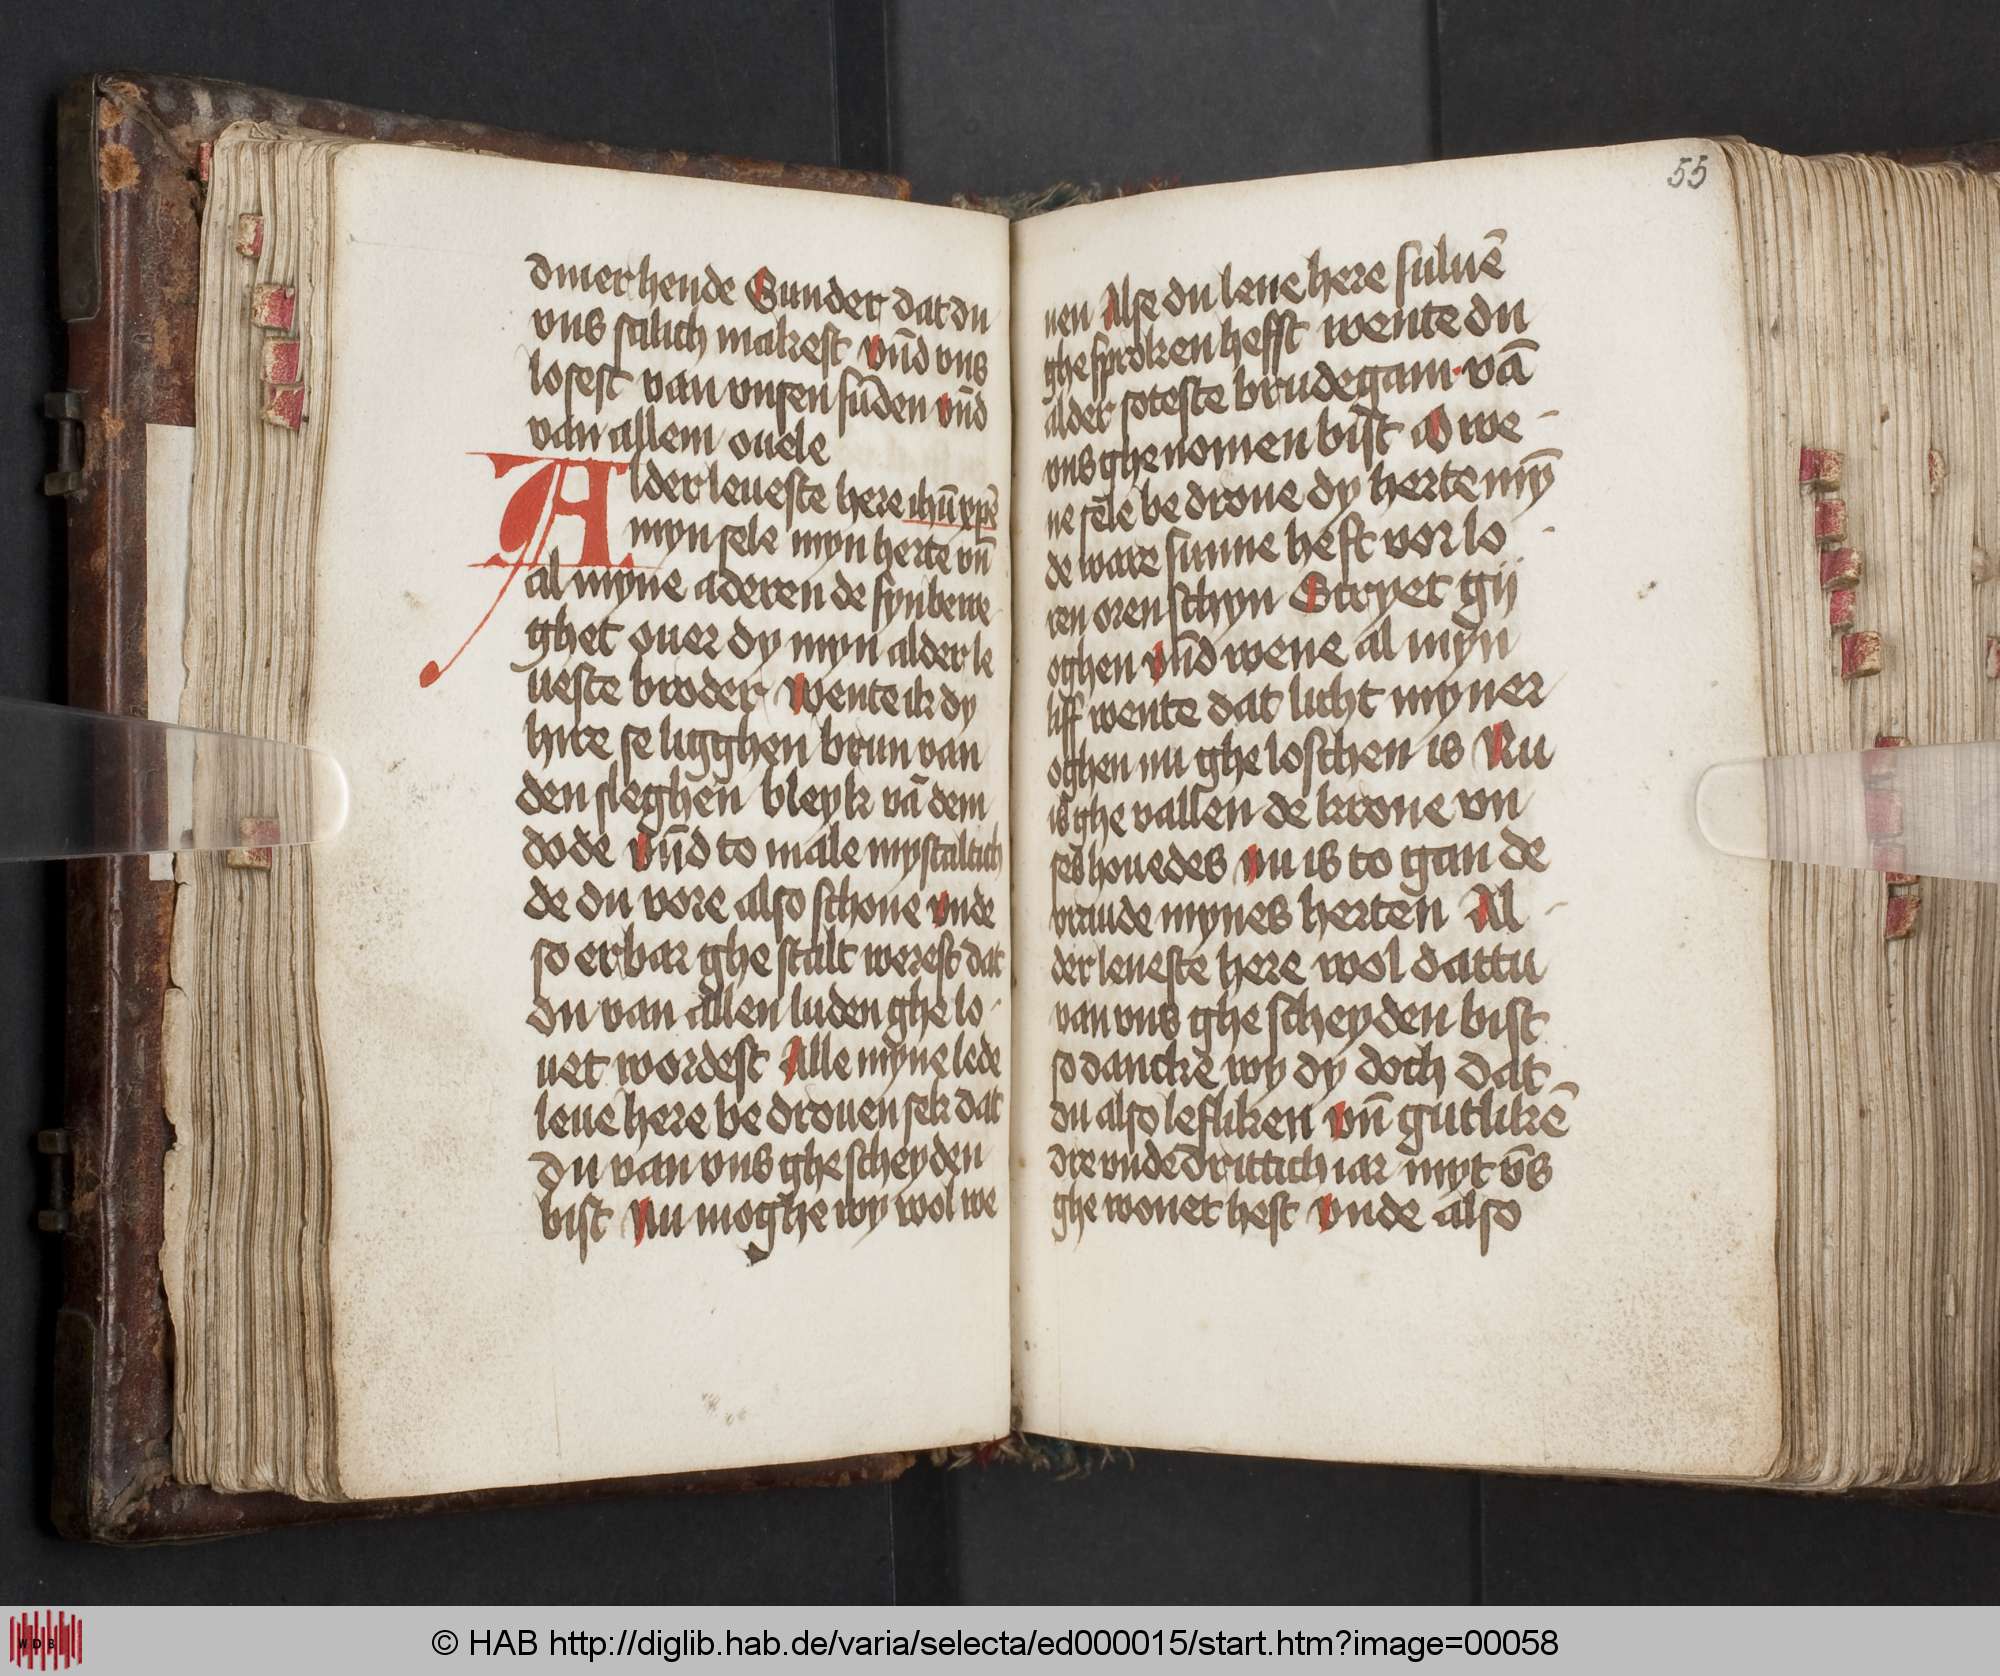 dmerhende Sunder dat du
vns salich makest vn̄d vns
losest van vnsen sūden vn̄d
van allem ouele
Alder leueste here ihū xpē
myn sele myn herte vn̄
al myne aderen de syn bewe
ghet ouer dy myn alder le
ueste broder wente ik dy
hire se ligghen brun van
den sleghen bleyk vā dem
dode vn̄d to male mystaltich
de du vore also schone vnde
so erbar ghe stalt werest dat
du van allen luden ghe lo-
uet wordest Alle myne lede
leue here be drouen sek dat
du van vns ghe scheyden
bist Nu moghe wy wol we
55
nen Alse du leue here suluē
ghe sproken hefft wente du
alder soteste brudegam vā
vns ghe nomen bist O we -
ne sele be droue dy herte mȳ
de ware sunne heft vor lo -
ren oren schyn Stryet gij
oghen vn̄d wene al myn
liff wente dat licht myner
oghen nu ghe loschen is Nu
is ghe vallen de krone vn
ses houedes nu is to gan de
vraude mynes herten Al -
der leueste here wol dattu
van vns ghe scheyden bist
so dancke wy dy doch dat
du also lefliken vn̄ gutlikē
dre vnde drittich iar myt vn̄s
ghe wonet hest vnde also
© HAB http://diglib.hab.de/varia/selecta/ed000015/start.htm?image=00058
WDB